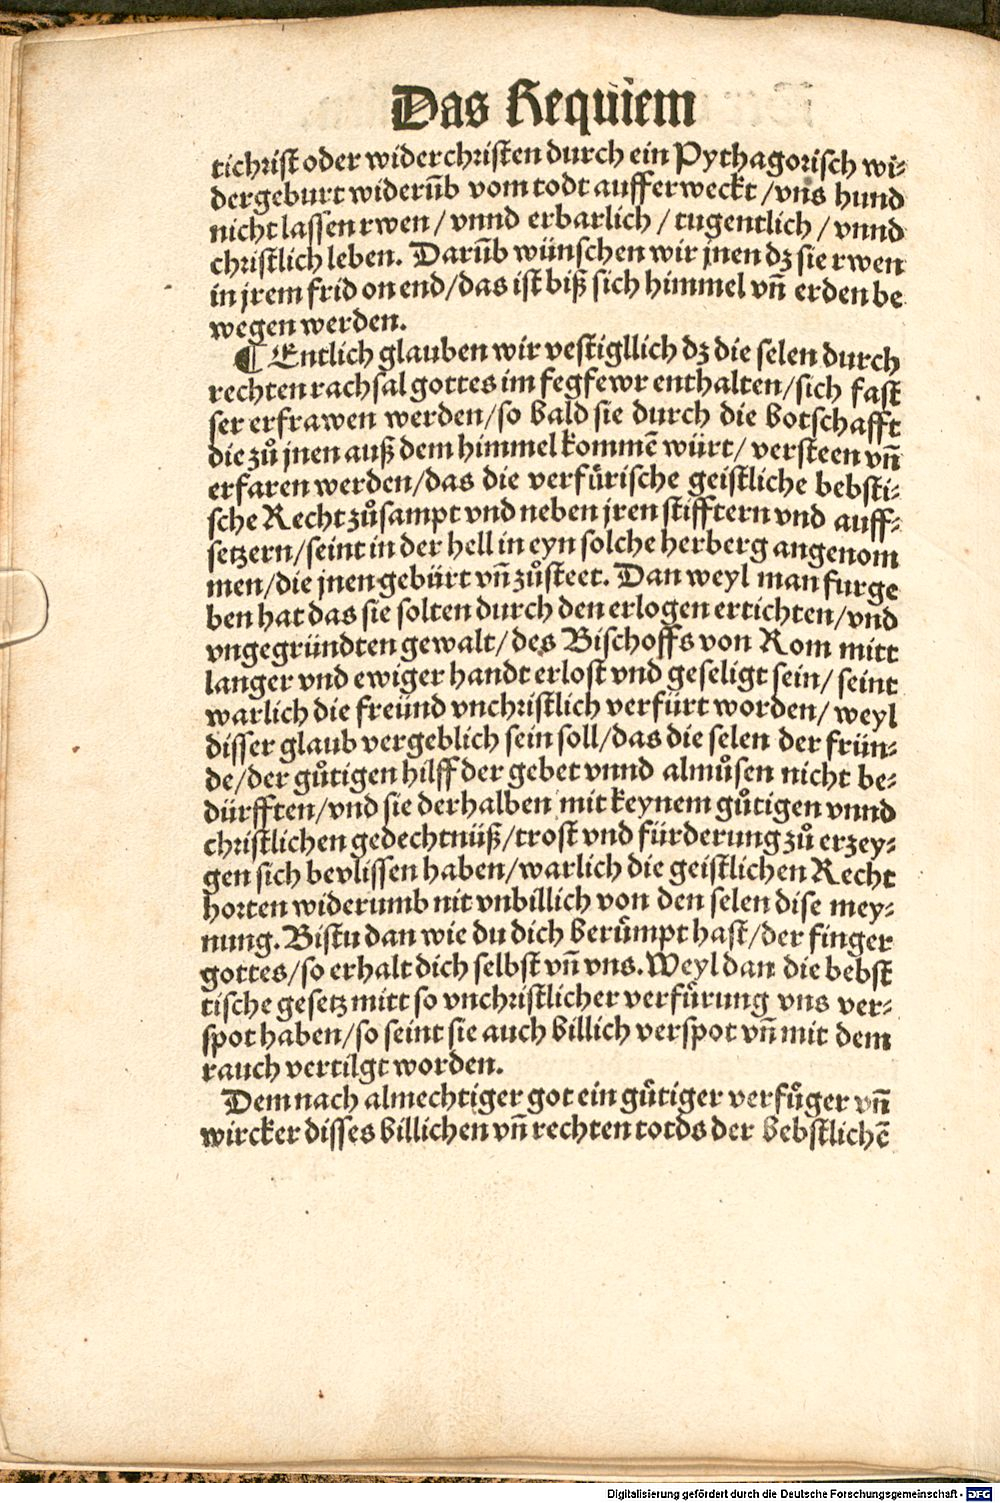 Das Requiem
tichrist oder widerchristen durch ein Pythagorisch wi⸗
dergeburt widerūb vom todt aufferweckt/vns hund
nicht lassen rwen/vnnd erbarlich/tugentlich/vnnd
christlich leben. Darūb wünschen wir jnen dz sie rwen
in jrem frid on end/das ist biß sich himmel vñ erden be
wegen werden.
¶ Entlich glauben wir vestigllich dz die selen durch
rechten rachsal gottes im fegfewr enthalten/sich fast
ser erfrawen werden/so bald sie durch die botschafft
die zů jnen auß dem himmel kommē würt/versteen vñ
erfaren werden/das die verfürische geistliche bebsti⸗
sche Recht zůsampt vnd neben jren stifftern vnd auff⸗
setzern/seint in der hell in eyn solche herberg angenom
men/die jnen gebürt vñ zůsteet. Dan weyl man furge
ben hat das sie solten durch den erlogen ertichten/vnd
vngegründten gewalt/des Bischoffs von Rom mitt
langer vnd ewiger handt erlost vnd geseligt sein/seint
warlich die freünd vnchristlich verfürt worden/weyl
disser glaub vergeblich sein soll/das die selen der frün⸗
de/der gůtigen hilff der gebet vnnd almůsen nicht be⸗
dürfften/vnd sie derhalben mit keynem gůtigen vnnd
christlichen gedechtnüß/trost vnd fürderung zů erzey⸗
gen sich bevlissen haben/warlich die geistlichen Recht
horten widerumb nit vnbillich von den selen dise mey⸗
nung. Bistu dan wie du dich berůmpt hast/der finger
gottes/so erhalt dich selbst vñ vns. Weyl dan die bebst
tische gesetz mitt so vnchristlicher verfürung vns ver⸗
spot haben/so seint sie auch billich verspot vñ mit dem
rauch vertilgt worden.
Demnach almechtiger got ein gůtiger verfůger vñ
wircker disses billichen vñ rechten totds der bebstlichē
Digitalisierung gefördert durch die Deutsche Forschungsgemeinschaft - DFG